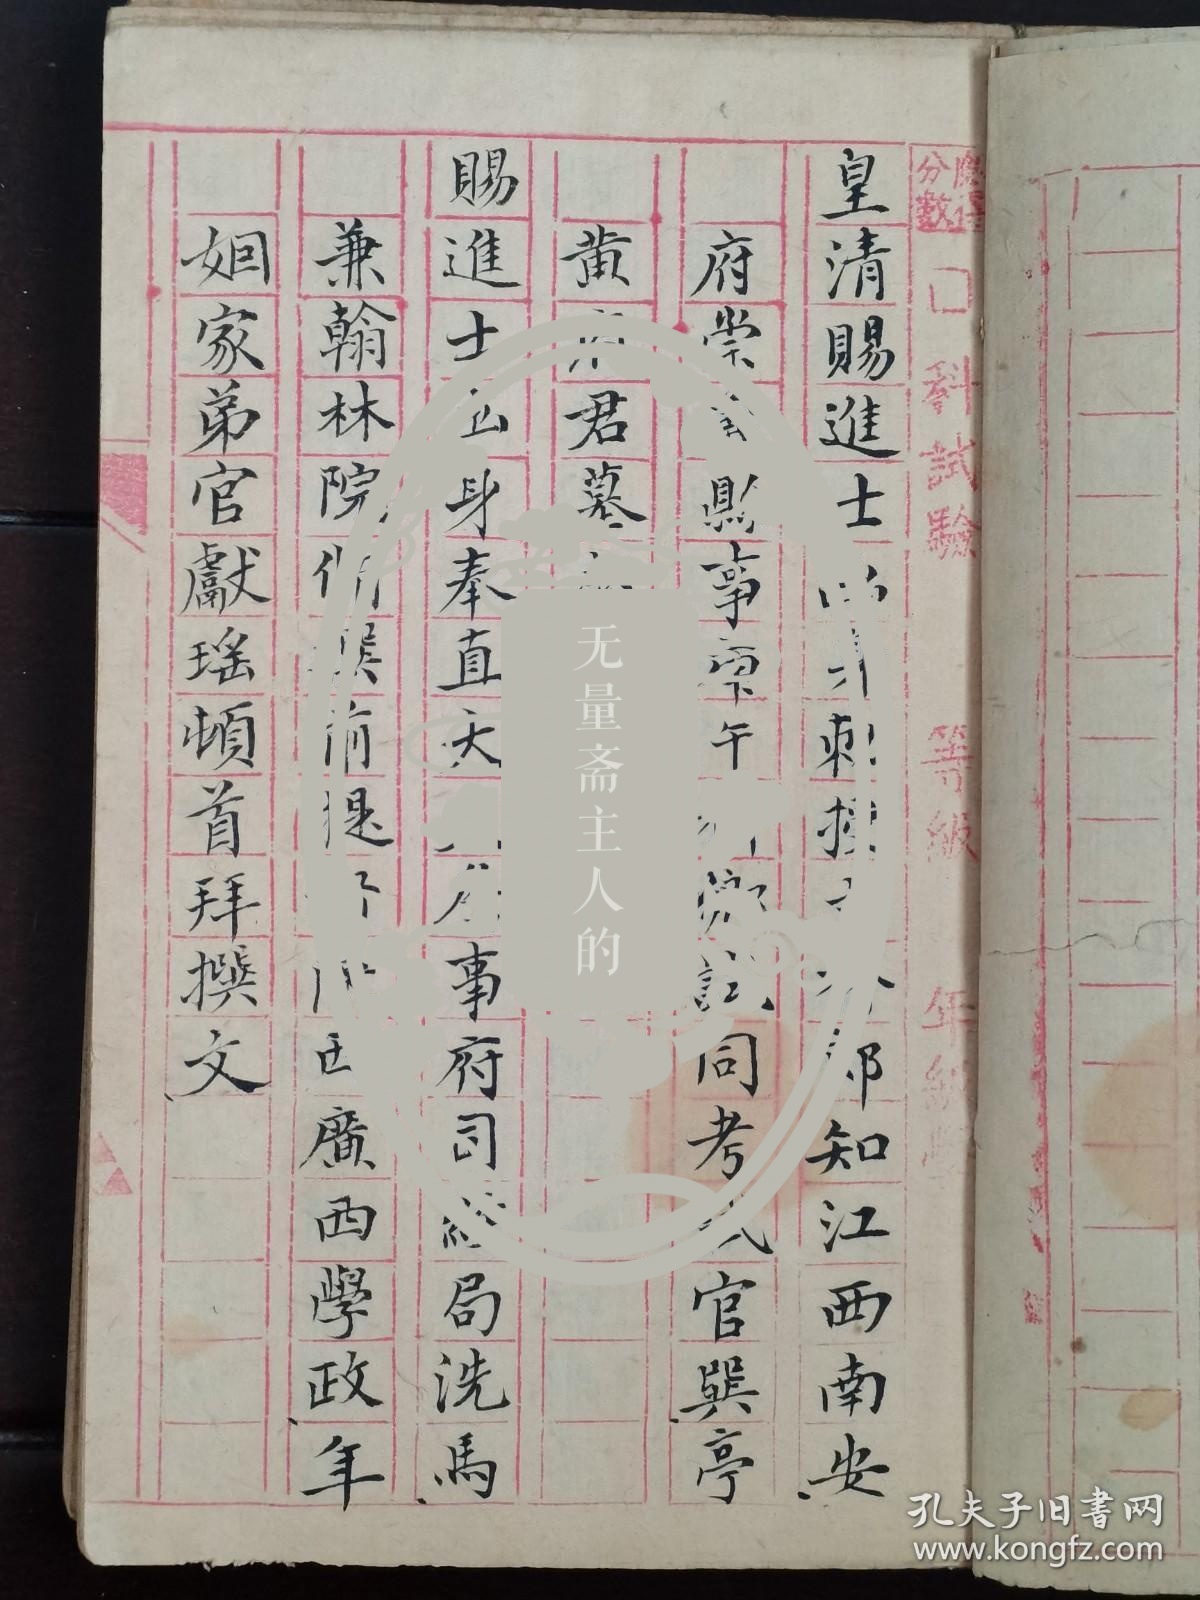 分數
口科試驗 等級 年級
皇清賜進士身刺授知江西南安
府崇縣事午試同考官巽亭
黄君墓
賜進士出身奉直大事府司經局洗馬
兼翰林院撰前提廣西學政年
姻家弟官獻瑤頓首拜撰文
无量斋主人的
孔夫子旧书网
www.kongfz.com